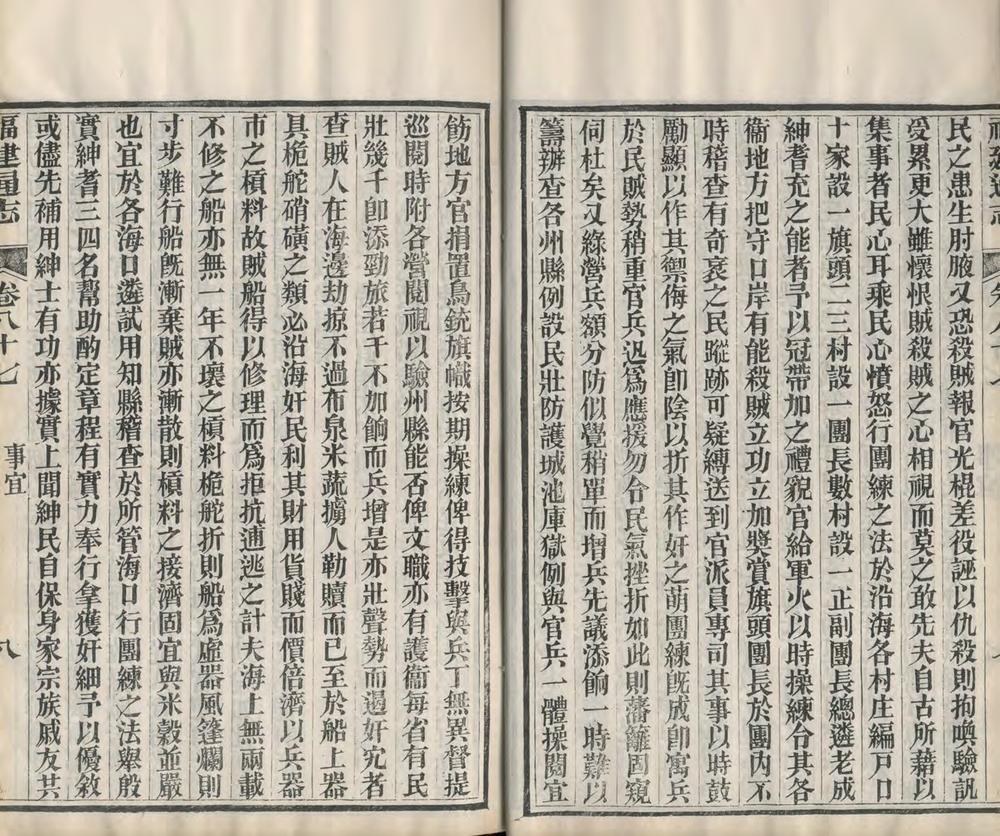 民之患生肘腋又恐殺賊報官光棍差役誣以仇殺則拘喚驗訊
受累更大雖懷恨賊殺賊之心相視而莫之敢先夫自古所藉以
集事者民心耳乘民心憤怒行團練之法於沿海各村庄編戸口
十家設一旗頭二三村設一團長數村設一正副團長總遴老成
紳耆充之能者予以冠帶加之禮貌官給軍火以時操練令其各
衞地方把守口岸有能殺賊立功立加獎賞旗頭團長於團內不
時稽查有奇衺之民蹤跡可疑縛送到官派員專司其事以時鼓
勵顯以作其禦侮之氣卽陰以折其作奸之萌團練旣成卽寓兵
於民賊勢稍重官兵迅爲應援勿令民氣挫折如此則藩籬固窺
伺杜矣又綠營兵額分防似覺稍單而增兵先議添餉一時難以
籌辦查各州縣例設民壯防護城池庫獄例與官兵一體操閱宜
飭地方官捐置鳥銃旗幟按期操練俾得技擊與兵丁無異督提
巡閱時附各營閱視以驗州縣能否俾文職亦有護衞每省有民
壯幾千卽添勁旅若干不加餉而兵增是亦壯聲勢而遏奸宄者
查賊人在海邊劫掠不過布泉米蔬擄人勒贖而已至於船上器
具桅舵硝磺之類必沿海奸民利其財用貨賤而價倍濟以兵器
市之槓料故賊船得以修理而爲拒抗逋逃之計夫海上無兩載
不修之船亦無一年不壞之槓料桅舵折則船爲虛器風篷爛則
寸步難行船旣漸棄賊亦漸散則槓料之接濟固宜與米穀並嚴
也宜於各海口遴試用知縣稽查於所管海口行團練之法舉殷
實紳耆三四名幫助酌定章程有實力奉行拿獲奸細予以優敘
或儘先補用紳士有功亦據實上聞紳民自保身家宗族戚友其
福建通志 卷八十七 事宜 八